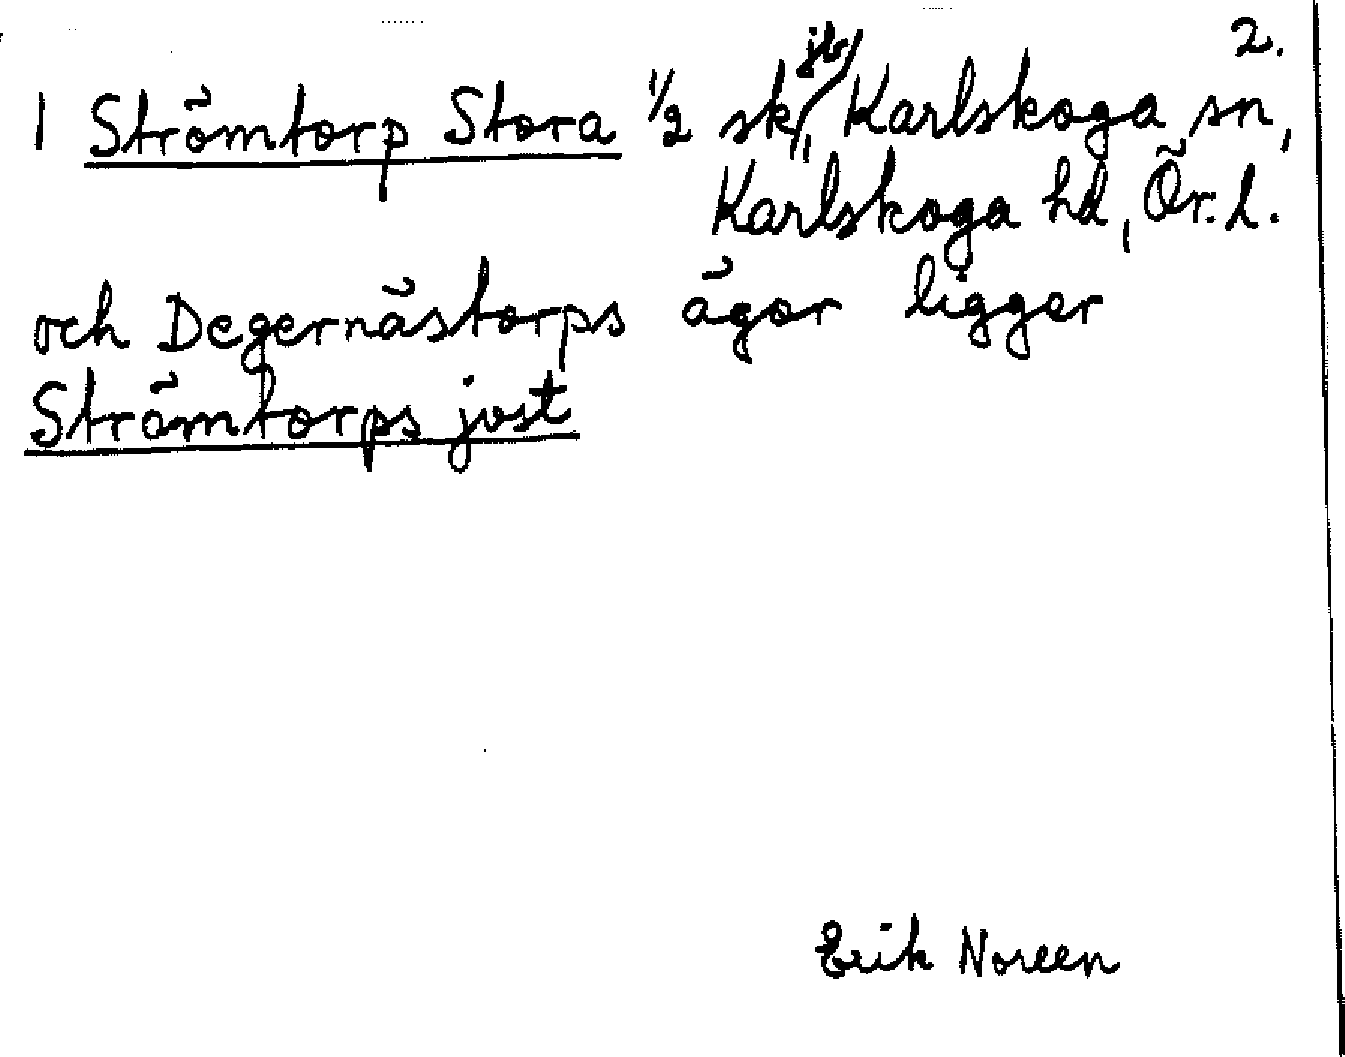 2.
1 Strömtorp Stora 1/2 sk, jb, Karlskoga sn,
Karlskoga hd, Ör. l.
och Degernästorps ägor ligger
Strömtorps jost
Erik Noreen